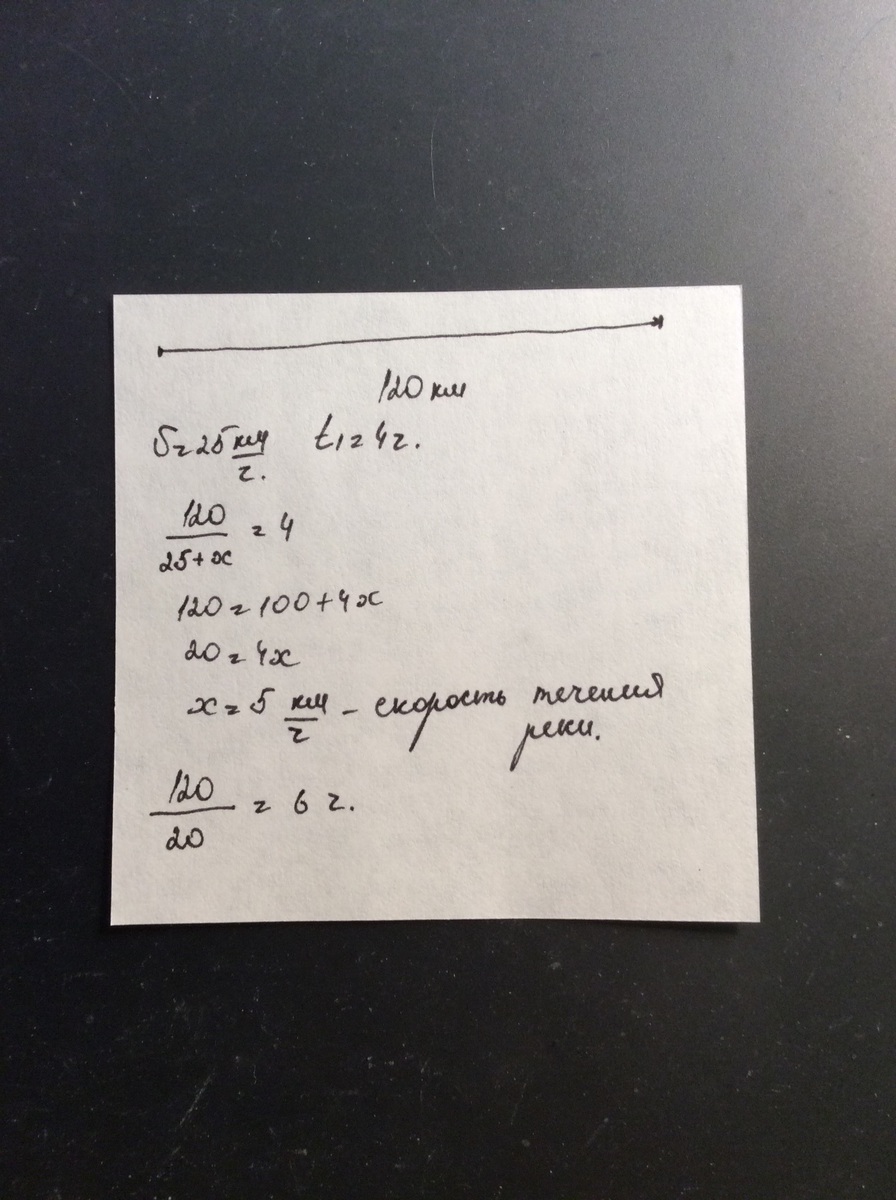 120 км
S=25 км/ч. t1=4ч.
120/25+x = 4
120=100+4x
20=4x
x=5 км/ч - скорость течения
реки.
120/20 = 6 ч.